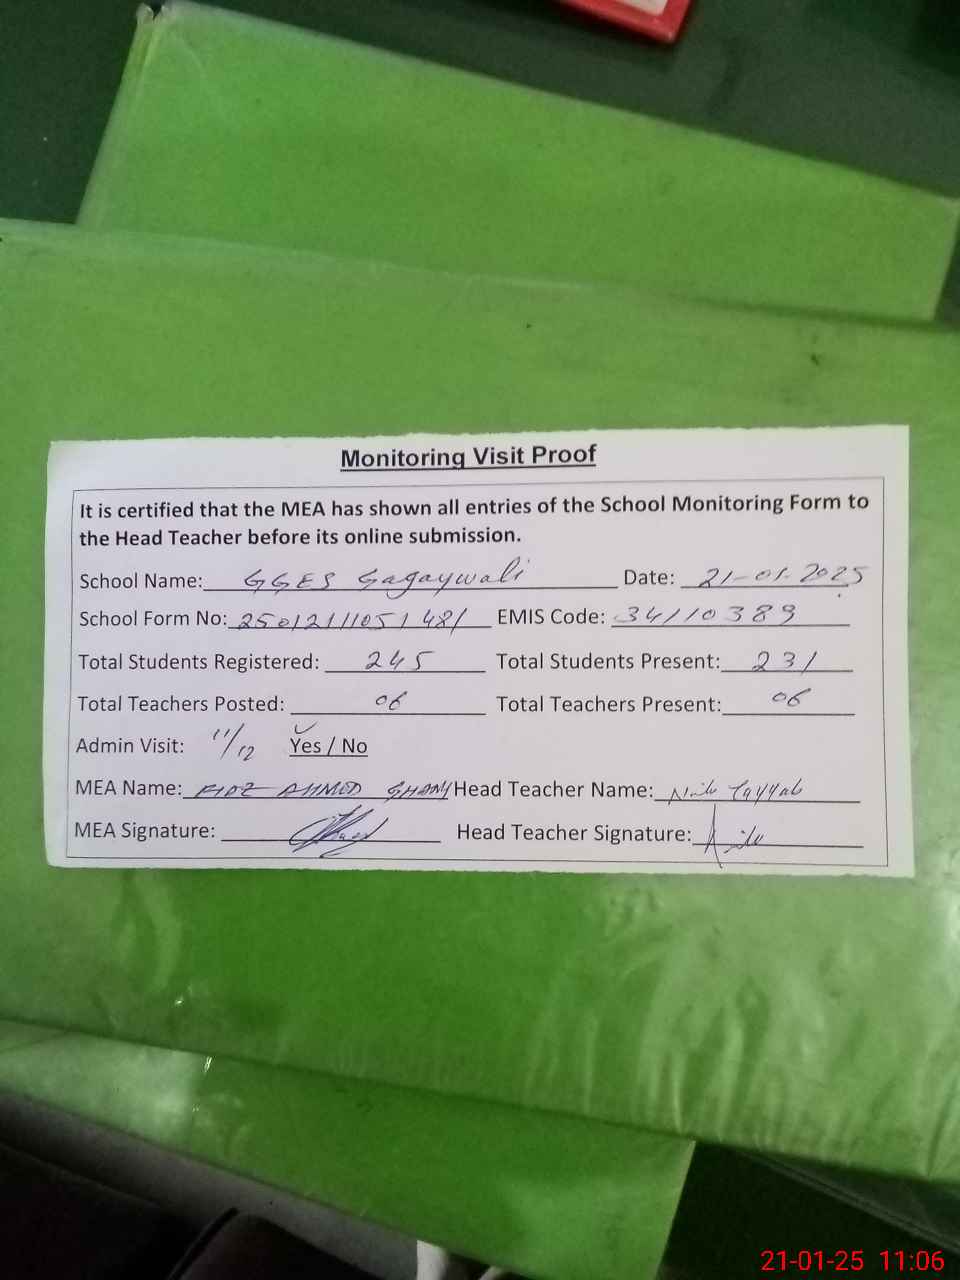 Monitoring Visit Proof
It is certified that the MEA has shown all entries of the School Monitoring Form to
the Head Teacher before its online submission.
School Name: GGES Gagaywali Date: 21-01-2025
School Form No: EMIS Code: 34110389
Total Students Registered: 245 Total Students Present: 231
Total Teachers Posted: 06 Total Teachers Present: 06
Admin Visit: 11/12 Yes / No
MEA Name: AHMED GHANI Head Teacher Name: Tayyab
MEA Signature: Head Teacher Signature:
21-01-25 11:06